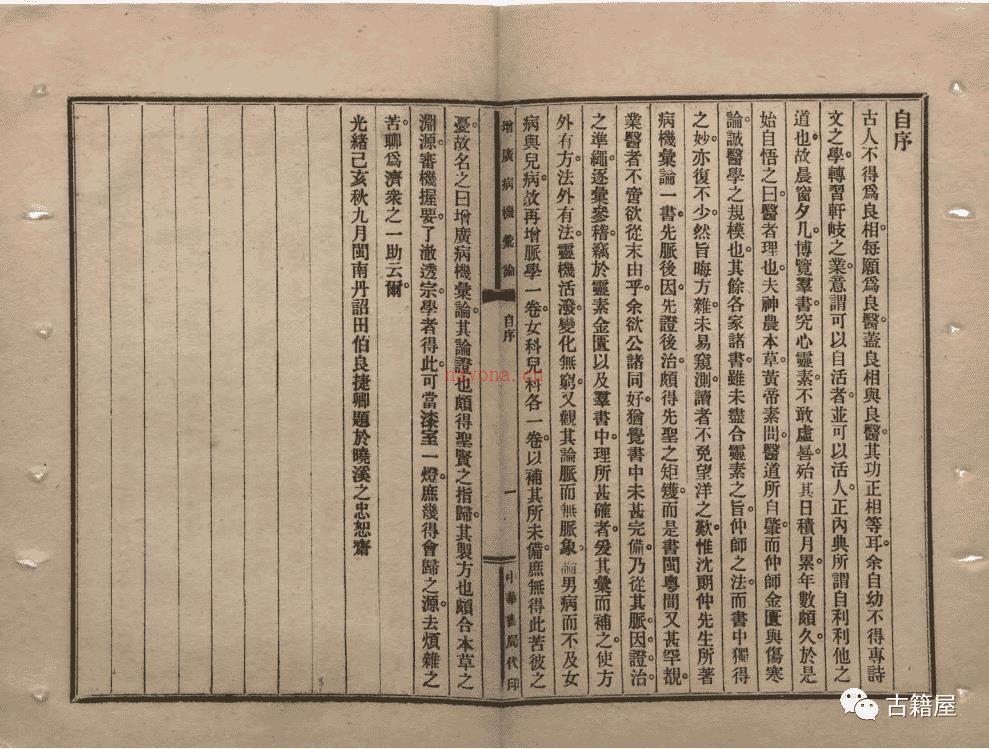 自序
古人不得爲良相。每願爲良醫。蓋良相與良醫。其功正相等耳。余自幼不得專詩
文之學。轉習軒岐之業。意謂可以自活者。並可以活人。正內典所謂自利利他之
道也。故晨窗夕几。博覽羣書。究心靈素。不敢虛晷。殆其日積月累。年數頗久。於是
始自悟之曰。醫者理也。夫神農本草。黃帝素問。醫道所自肇。而仲師金匱與傷寒
論。誠醫學之規模也。其餘各家諸書。雖未盡合靈素之旨。仲師之法。而書中獨得
之妙。亦復不少。然旨晦方雜。未易窺測。讀者不免望洋之歎。惟沈朗仲先生所著
病機彙論一書。先脈後因。先證後治。頗得先聖之矩矱。而是書閩粵間又甚罕覯。
業醫者不啻欲從末由乎。余欲公諸同好。猶覺書中未甚完備。乃從其脈。因證治。
之準繩。逐彙參稽。竊於靈素金匱以及羣書中。理所甚確者。爰其彙而補之。使方
外有方。法外有法。靈機活潑。變化無窮。又觀其論脈而無脈象。論男病而不及女
病與兒病。故再增脈學一卷。女科兒科各一卷。以補其所未備。庶無得此苦彼之
增廣病機彙論 自序 一 中華書局代印
憂。故名之曰增廣病機彙論。其論證也。頗得聖賢之指歸。其製方也。頗合本草之
淵源。審機握要。了澈透宗。學者得此。可當漆室一燈。庶幾得會歸之源。去煩雜之
苦。聊爲濟衆之一助云爾。
光緒己亥秋九月閩南丹詔田伯良捷卿題於曉溪之忠恕齋
古籍屋